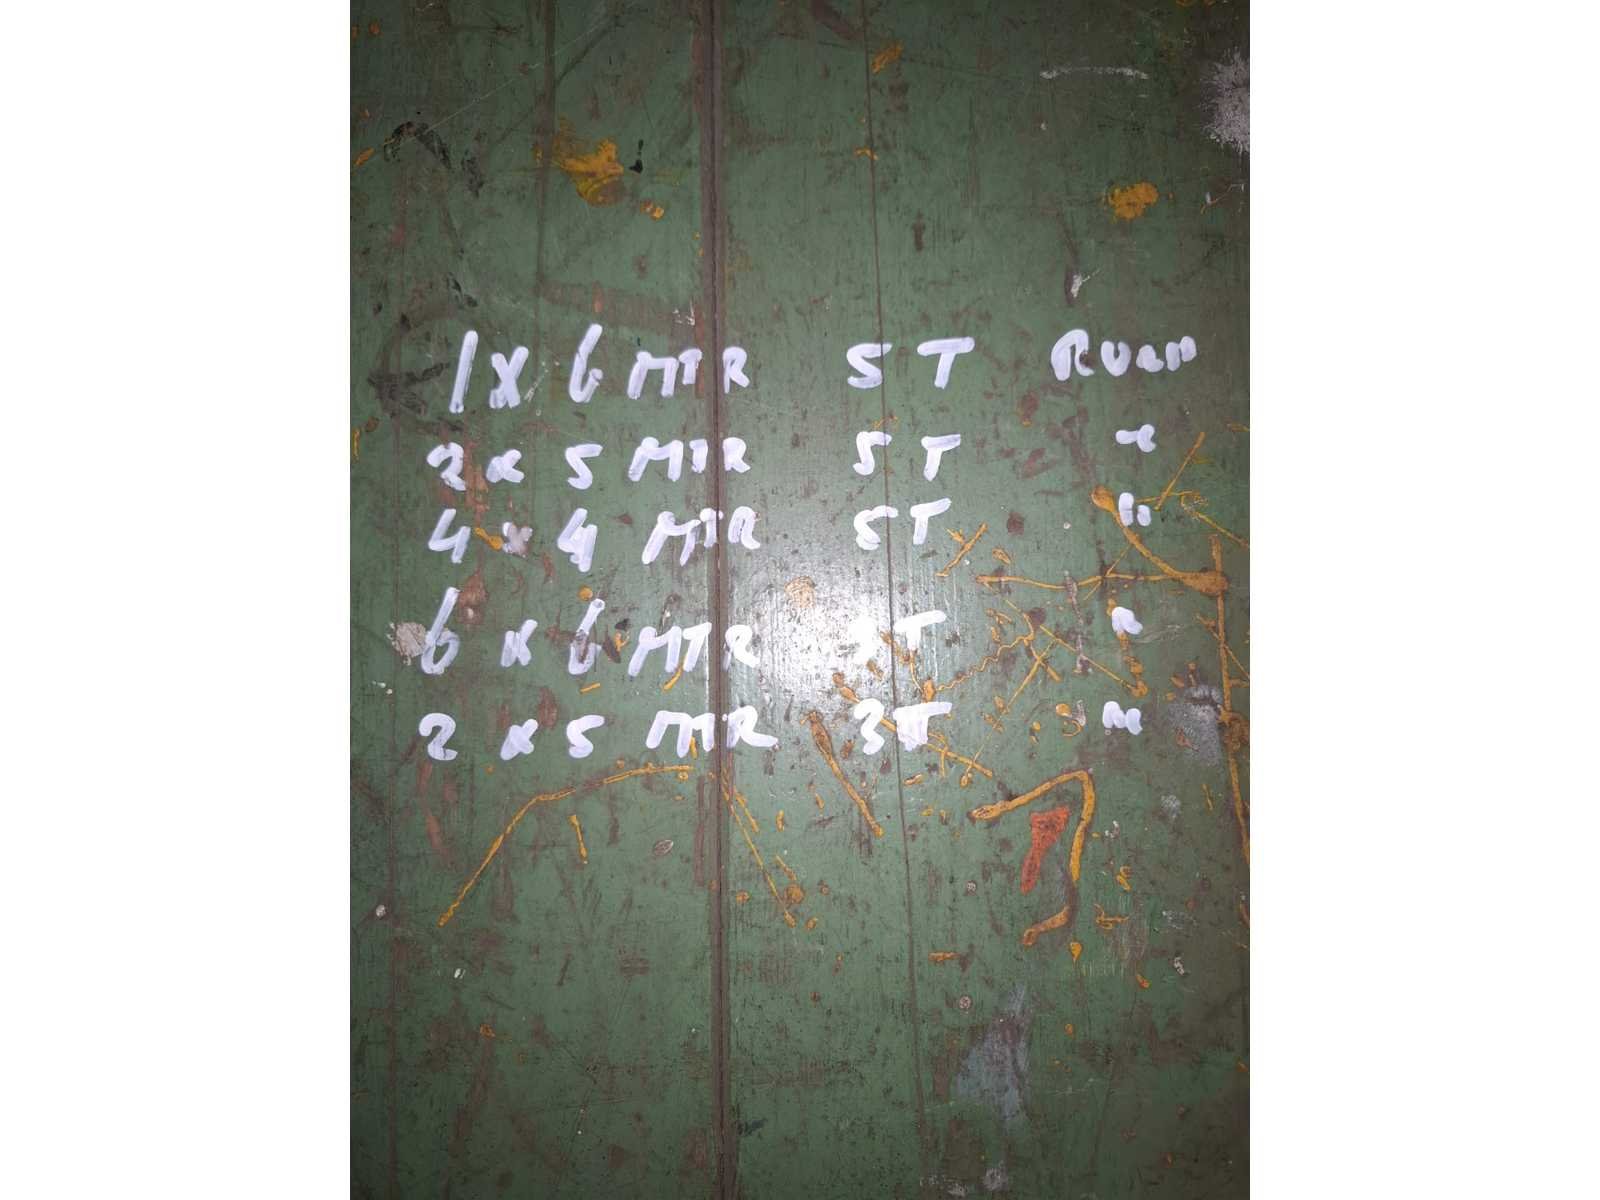 1 X 6 MTR 5 T
2 x 5 MTR 5 T "
4 x 4 MTR 5 T "
6 x 6 MTR 3 T "
2 x 5 MTR 3 T "